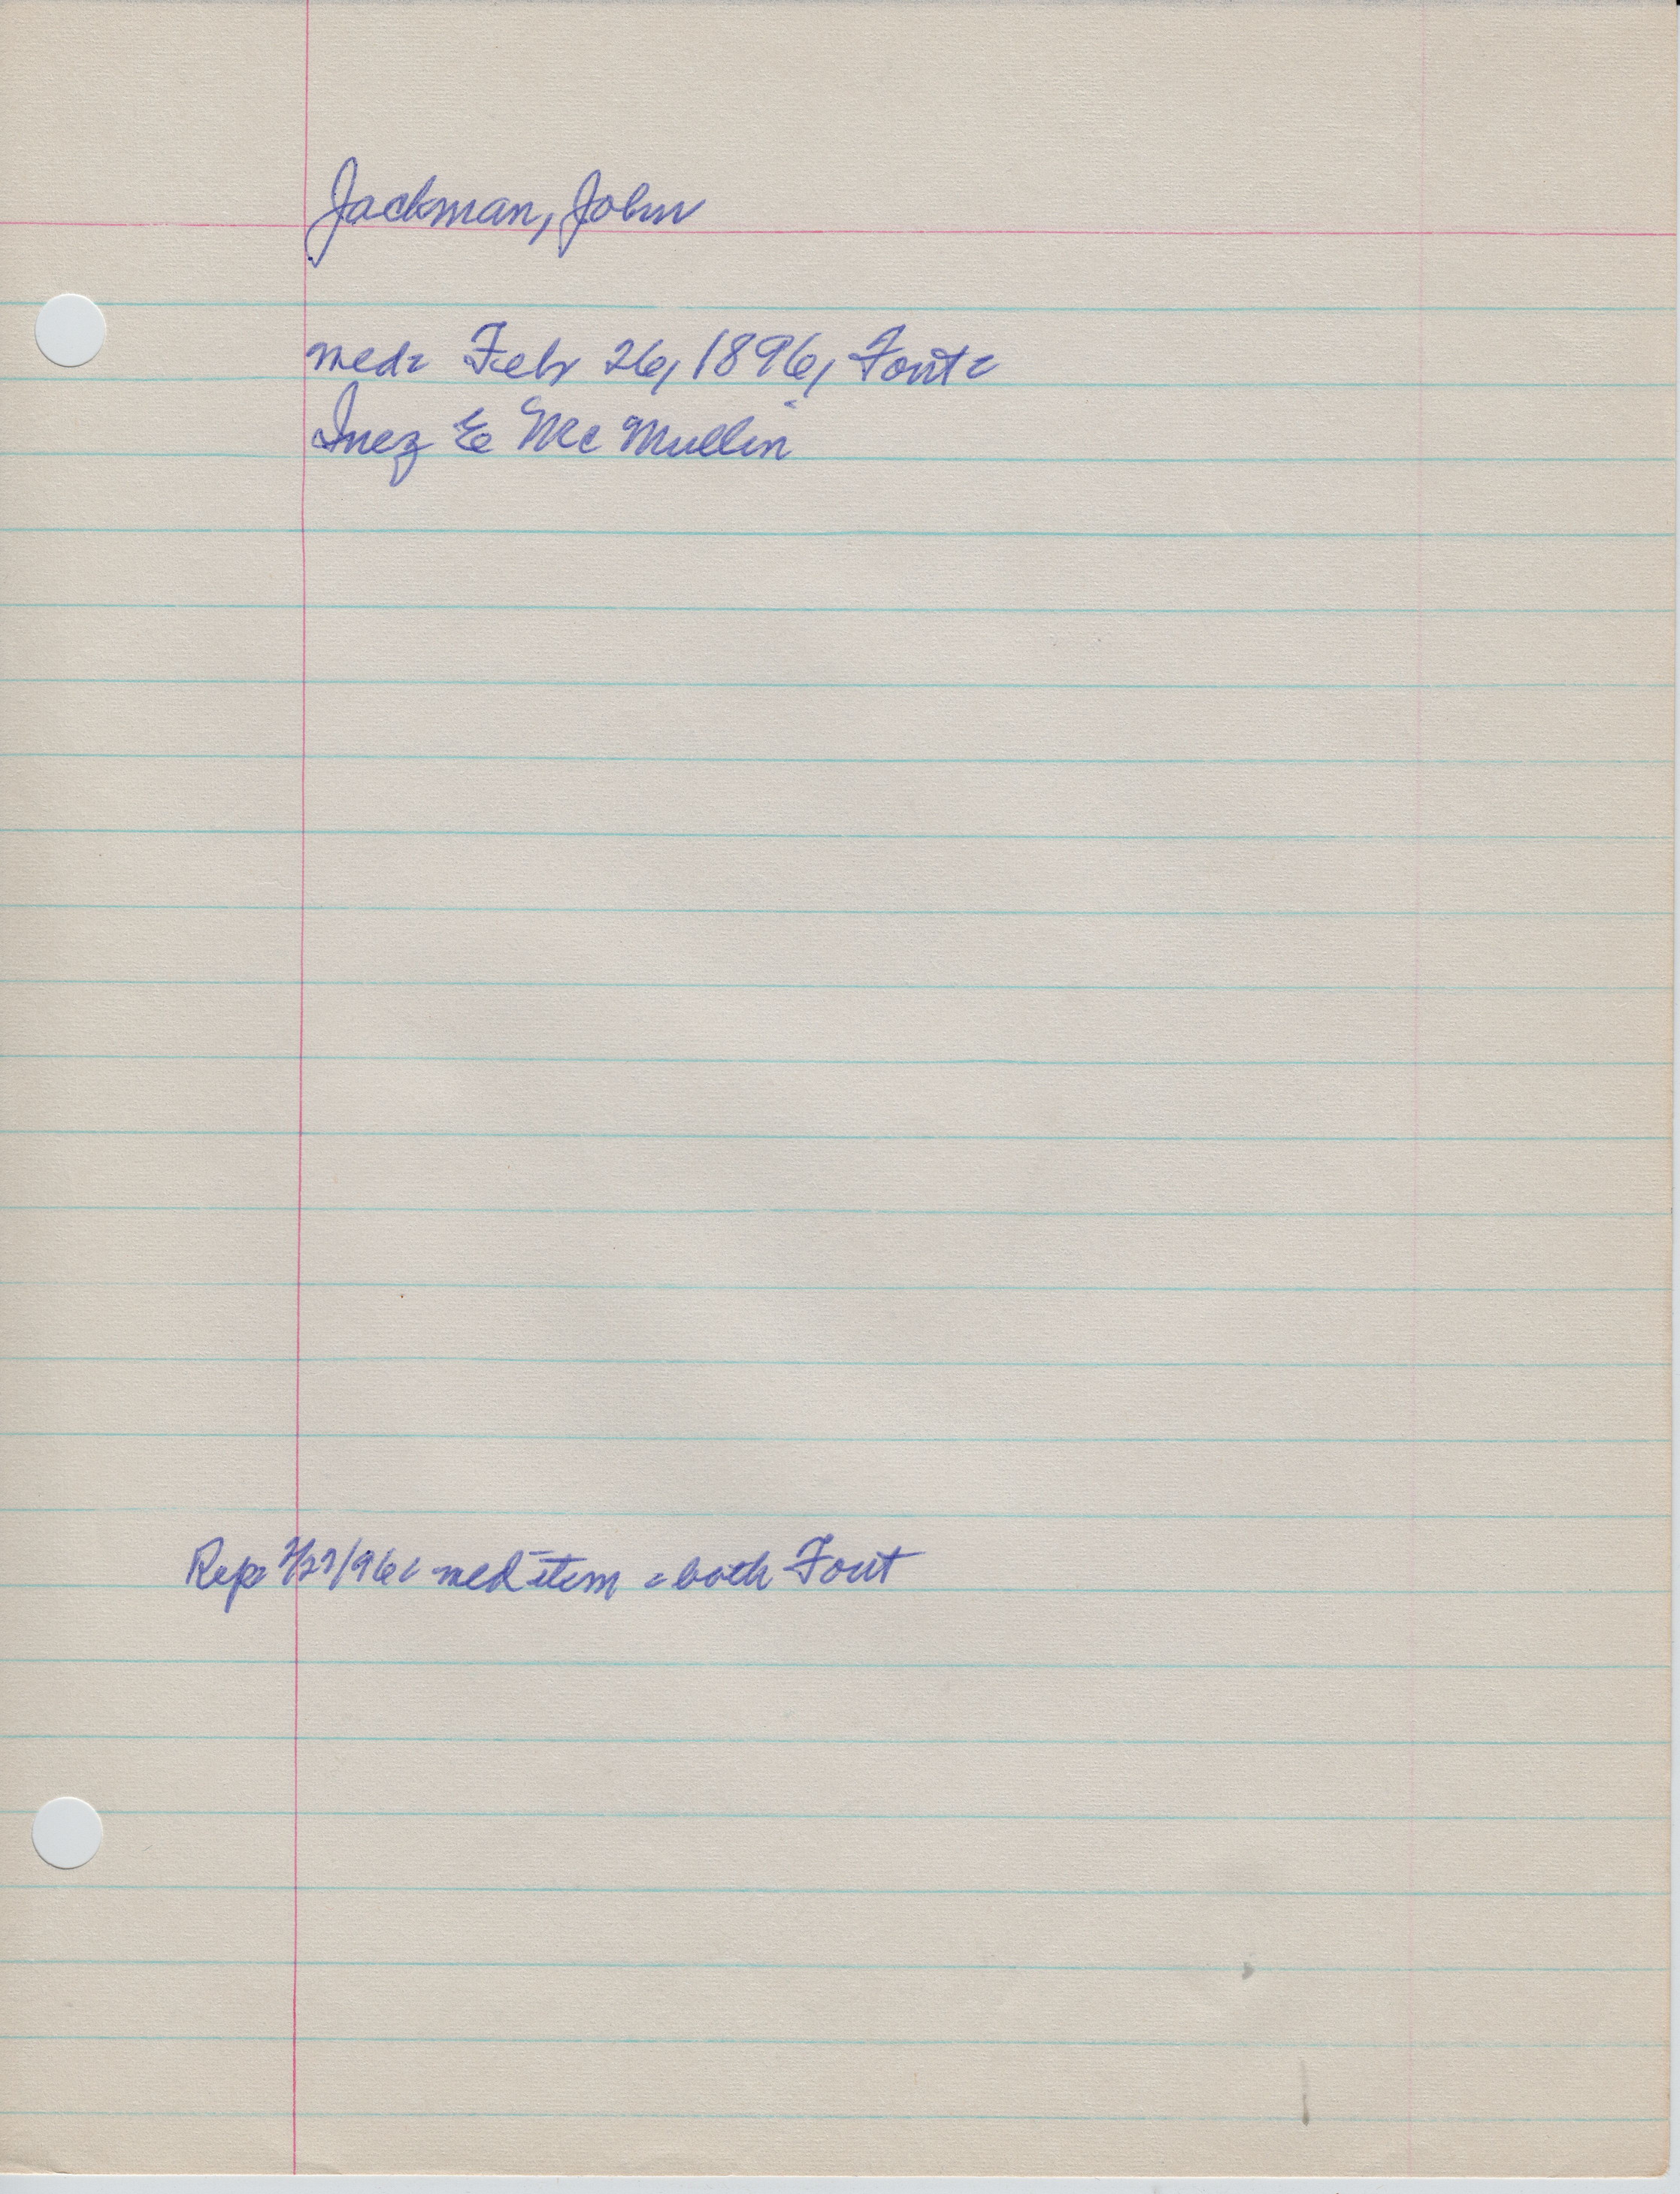 Jackman, John
med = Feb 26, 1896, Font =
Inez E McMullin
Rep = 2/27/96 = med item = both Font